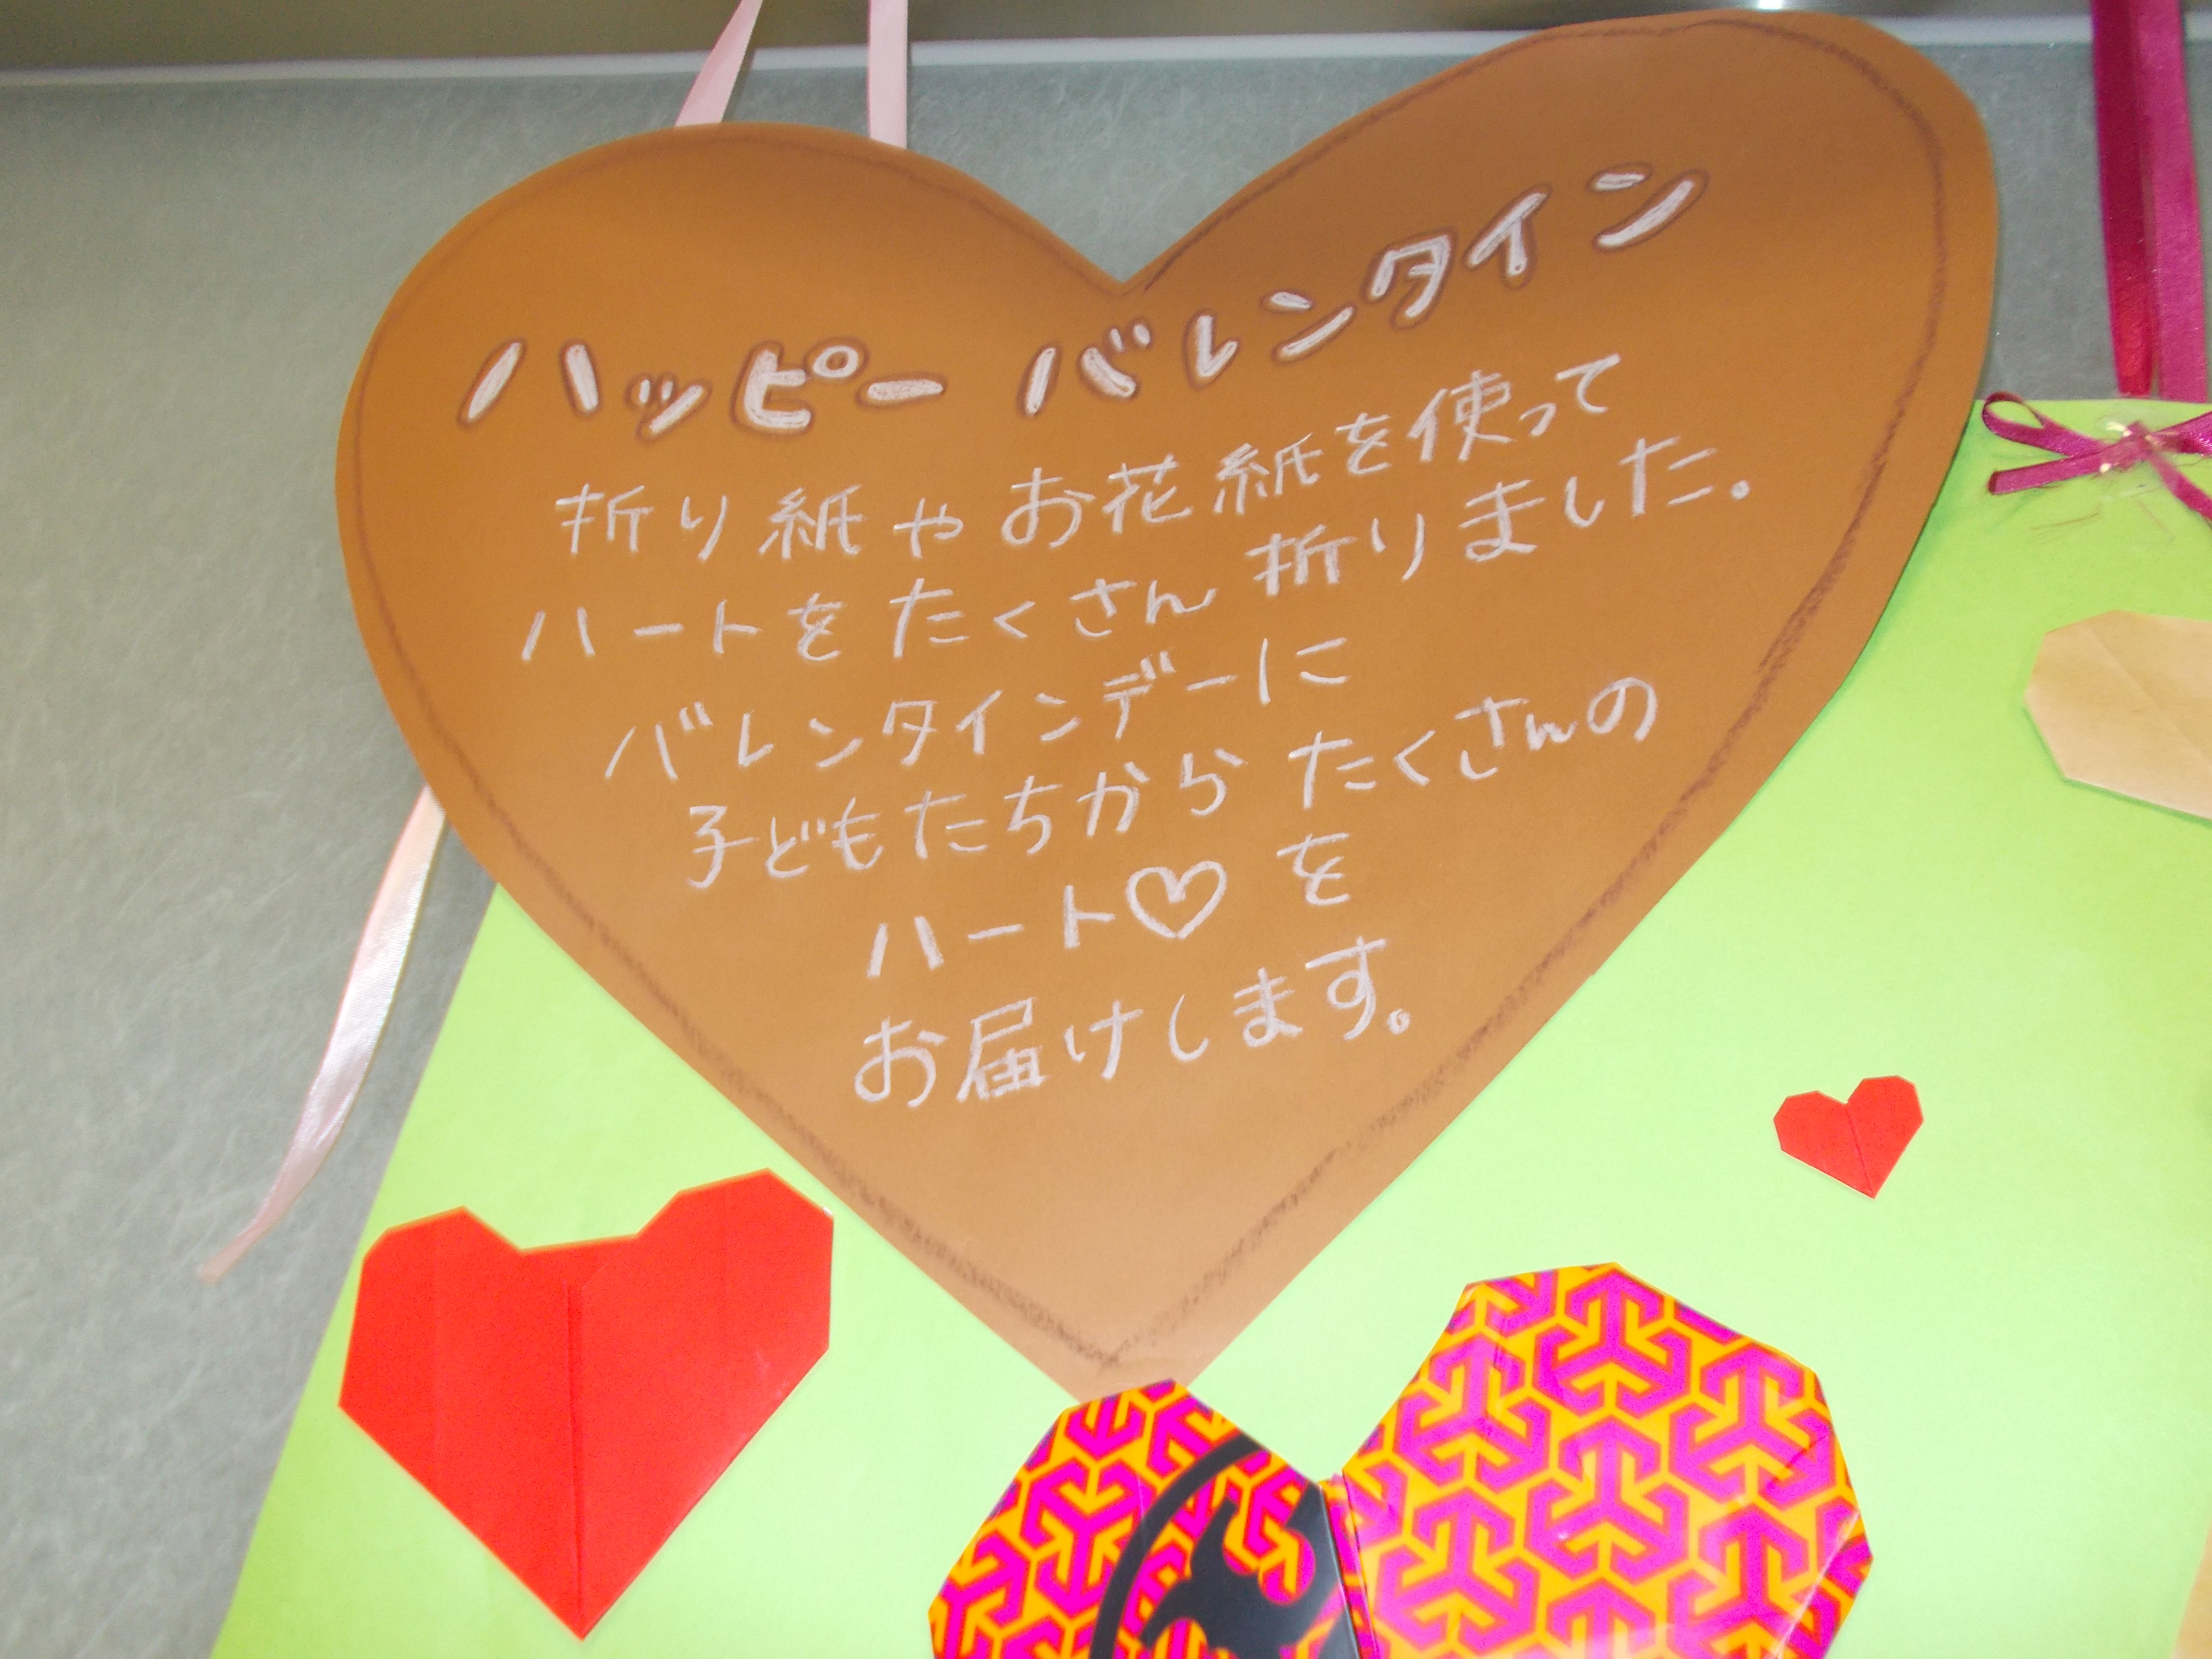 ハッピー バレンタイン
折り紙やお花紙を使って
ハートをたくさん折りました。
バレンタインデーに
子どもたちから たくさんの
ハート♡を
お届けします。